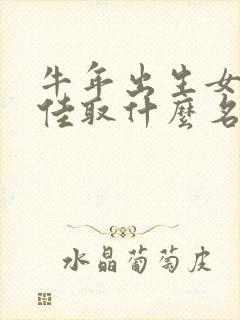 牛年出生女
佳取什麼名
水晶葡萄皮